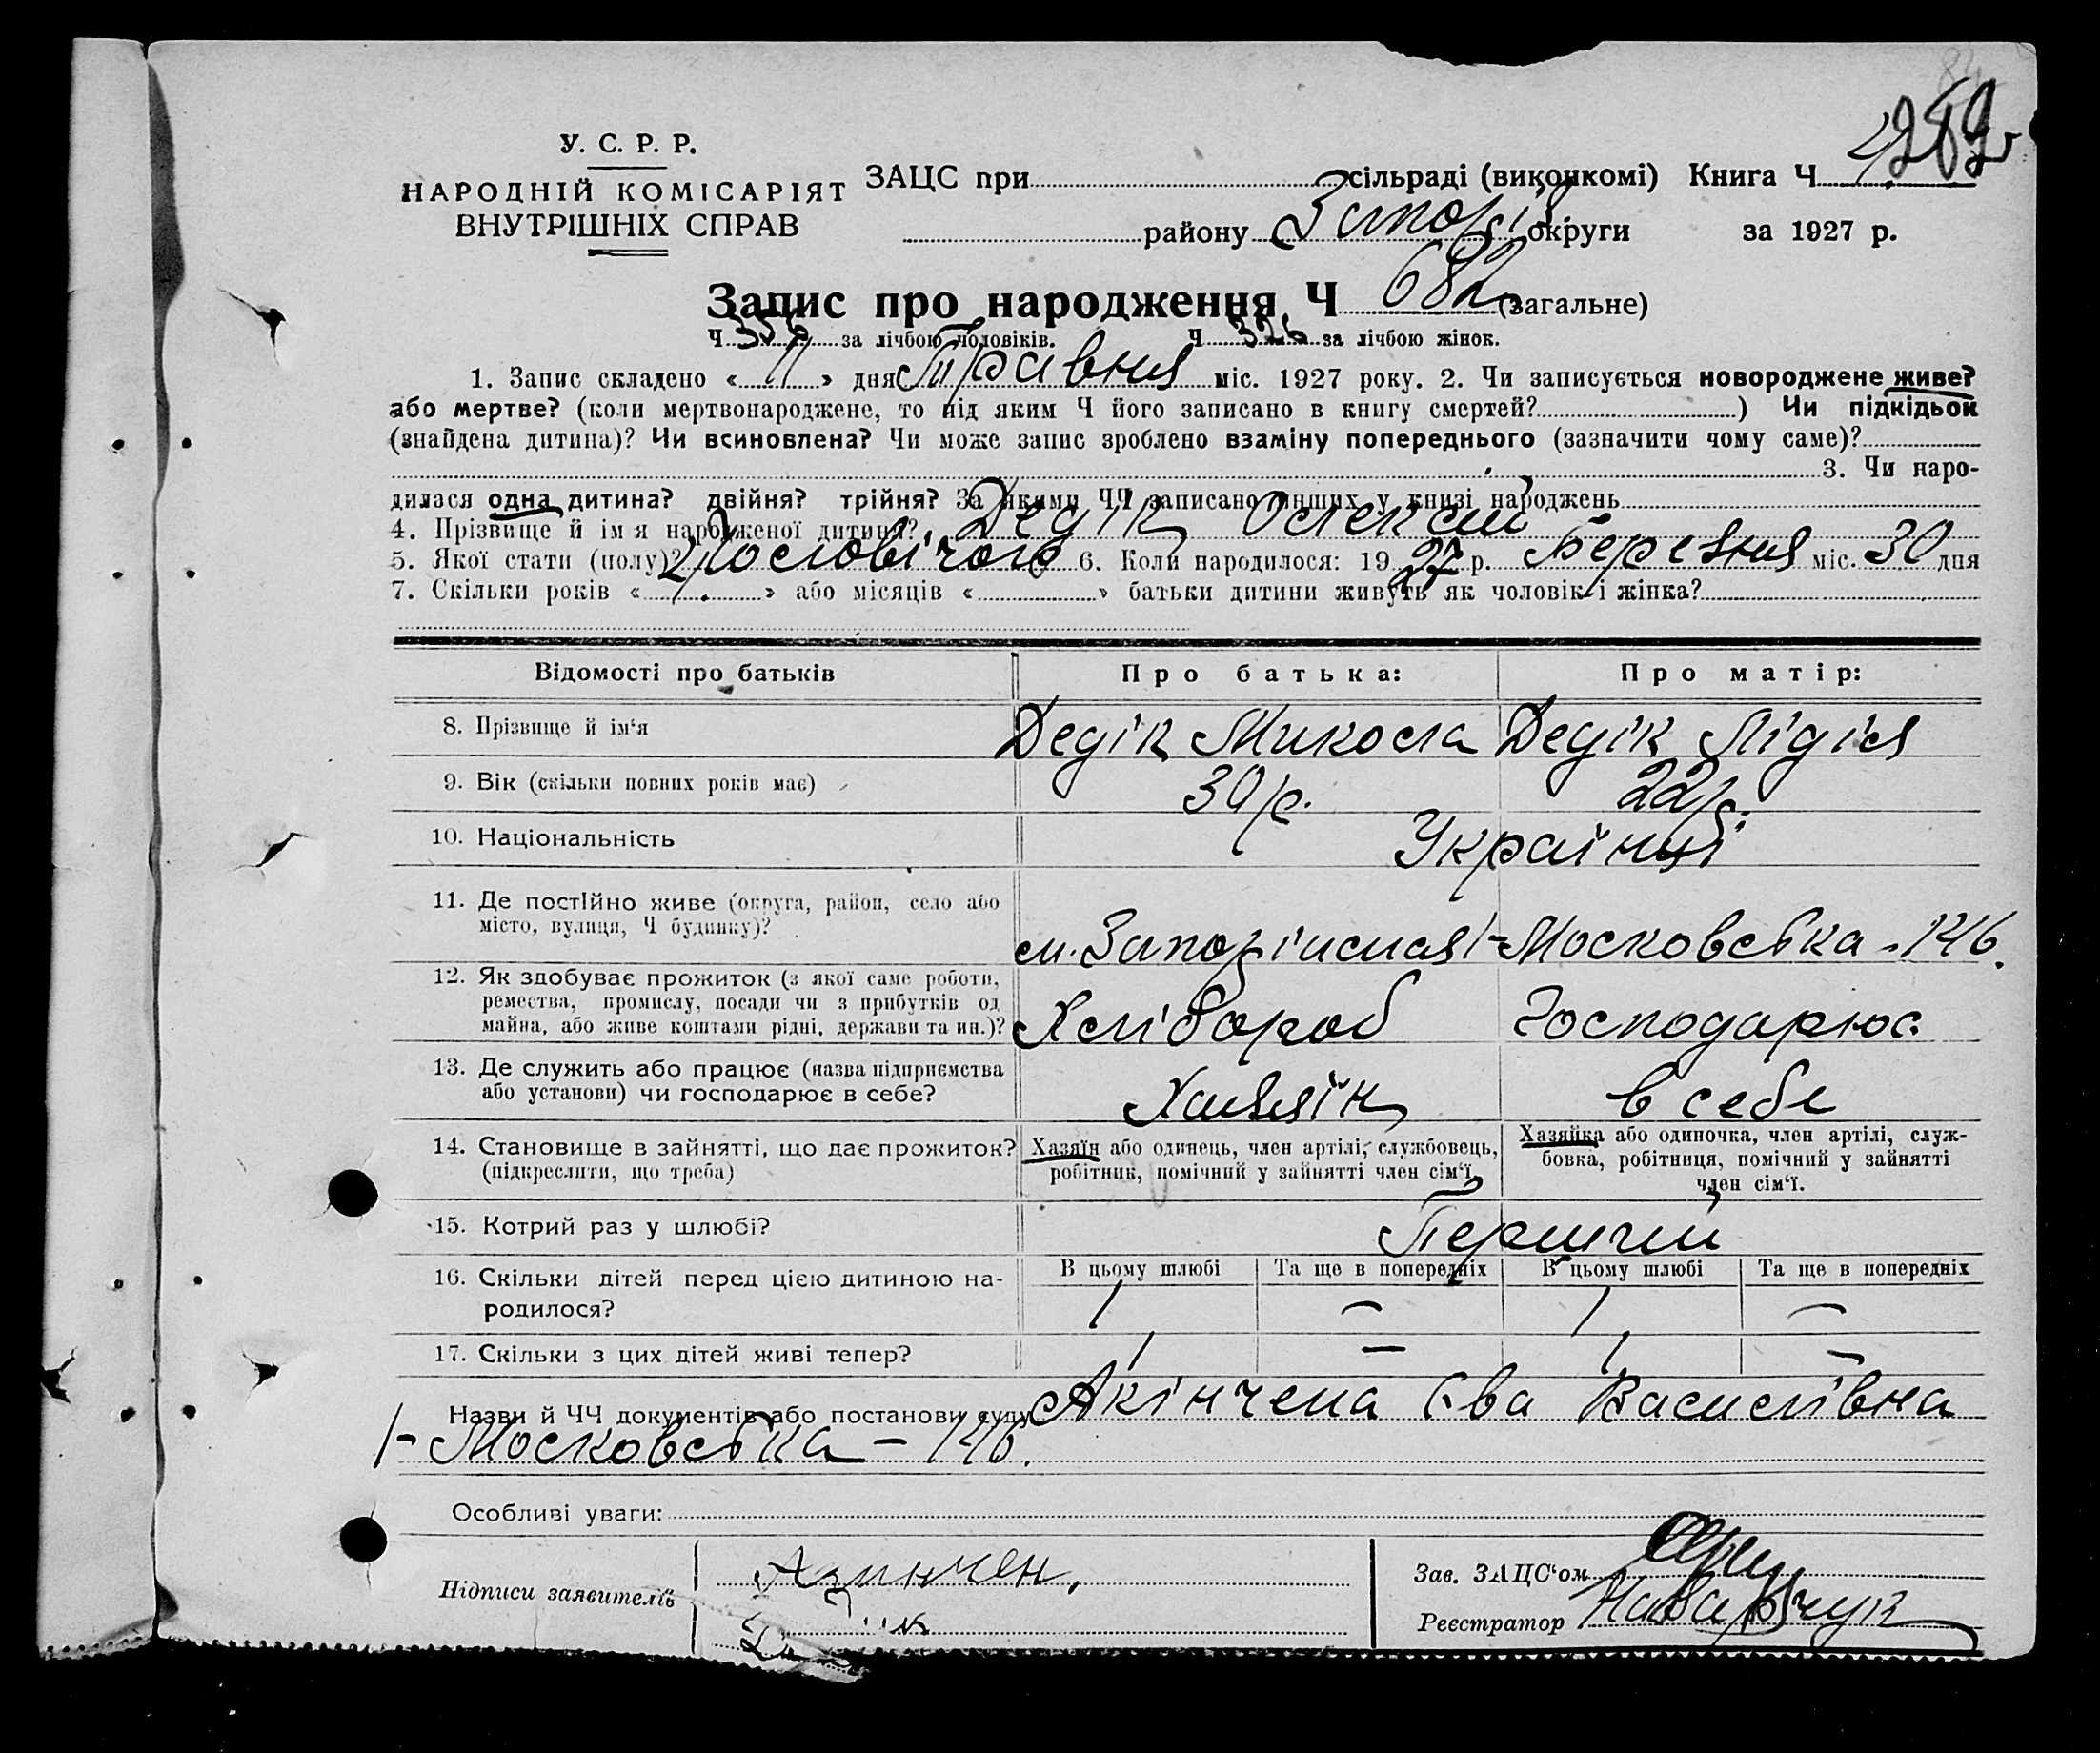 У. С. Р. Р.
НАРОДНІЙ КОМІСАРІЯТ
ВНУТРІШНІХ СПРАВ
ЗАЦС при сільраді (виконкомі) Книга Ч
району Запоріз. округи за 1927 р.
Запис про народження Ч 682 (загальне)
Ч 356 за лічбою чоловіків. Ч 326 за лічбою жінок.
1. Запис складено « 11 » дня Травня міс. 1927 року. 2. Чи записується новороджене живе?
або мертве? (коли мертвонароджене, то під яким Ч його записано в книгу смертей? ) Чи підкідьок
(знайдена дитина)? Чи всиновлена? Чи може запис зроблено взаміну попереднього (зазначити чому саме)?
3. Чи наро-
дилася одна дитина? двійня? трійня? За якими ЧЧ записано инших у книзі народжень
4. Прізвище й ім я народженої дитини? Дедік Олексій
5. Якої стати (полу)? Чоловічого 6. Коли народилося: 1927 р. Березня міс. 30 дня
7. Скільки років « » або місяців « » батьки дитини живуть як чоловік і жінка?
Відомості про батьків Про батька: Про матір:
8. Прізвище й ім‘я Дедік Микола Дедік Лідія
9. Вік (скільки повних років має) 30 р. 22 р.
10. Національність Українці
11. Де постійно живе (округа, район, село або
місто, вулиця, Ч будинку)? м. Запоріжжя 1-Московська - 146.
12. Як здобуває прожиток (з якої саме роботи,
ремества, промислу, посади чи з прибутків од
майна, або живе коштами рідні, держави та ин.)? Хлібороб Господарює
13. Де служить або працює (назва підприємства
або установи) чи господарює в себе? Хазяїн в себе
14. Становище в зайнятті, що дає прожиток?
(підкреслити, що треба)
Хазяїн або одинець, член артілі, службовець,
робітник, помічний у зайнятті член сім‘ї
Хазяйка або одиночка, член артілі, служ-
бовка, робітниця, помічний у зайнятті
член сім‘ї.
15. Котрий раз у шлюбі? Перший
16. Скільки дітей перед цією дитиною на-
родилося?
В цьому шлюбі Та ще в попередніх В цьому шлюбі Та ще в попередніх
1 — 1 —
17. Скільки з цих дітей живі тепер? 1 — 1 —
Назви й ЧЧ документів або постанови суду Акінчена Єва Василівна
1-Московська - 146.
Особливі уваги:
Підписи заявителів
Зав. ЗАЦС‘ом
Реєстратор